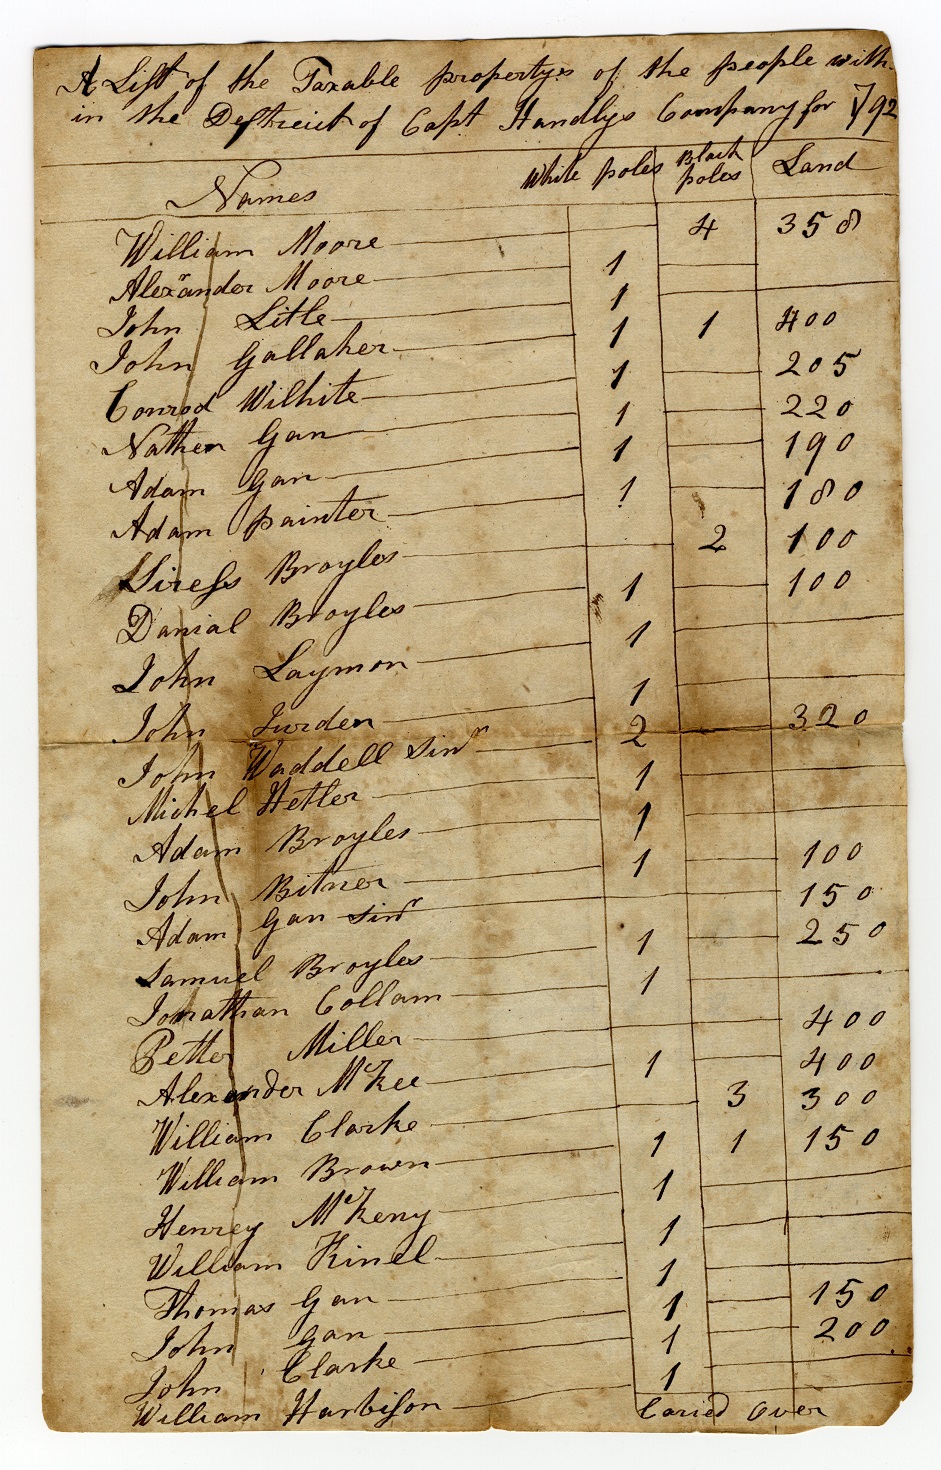 A List of the Taxable propertys of the people with-
in the Destreict of Capt Handlys Company for 1792
Names White poles Black poles Land
William Moore 4 358
Alexander Moore 1
John Litle 1
John Gallaher 1 1 400
Conrod Wilhite 1 205
Nathen Gan 1 220
Adam Gan 1 190
Adam painter 1 180
Siress Broyles 2 100
Danial Broyles 1 100
John Laymon 1
John Jurden 1
John Waddell Sinr 2 320
Michel Hetler 1
Adam Broyles 1
John Bitner 1 100
Adam Gan Sinr 150
Samuel Broyles 1 250
Jonathan Collam 1
Petter Miller 400
Alexander McKee 1 400
William Clarke 3 300
William Brown 1 1 150
Henrey McKeny 1
William Kinel 1
Thomas Gan 1
John Gan 1 150
John Clarke 1 200
William Harbison 1
Caried Over